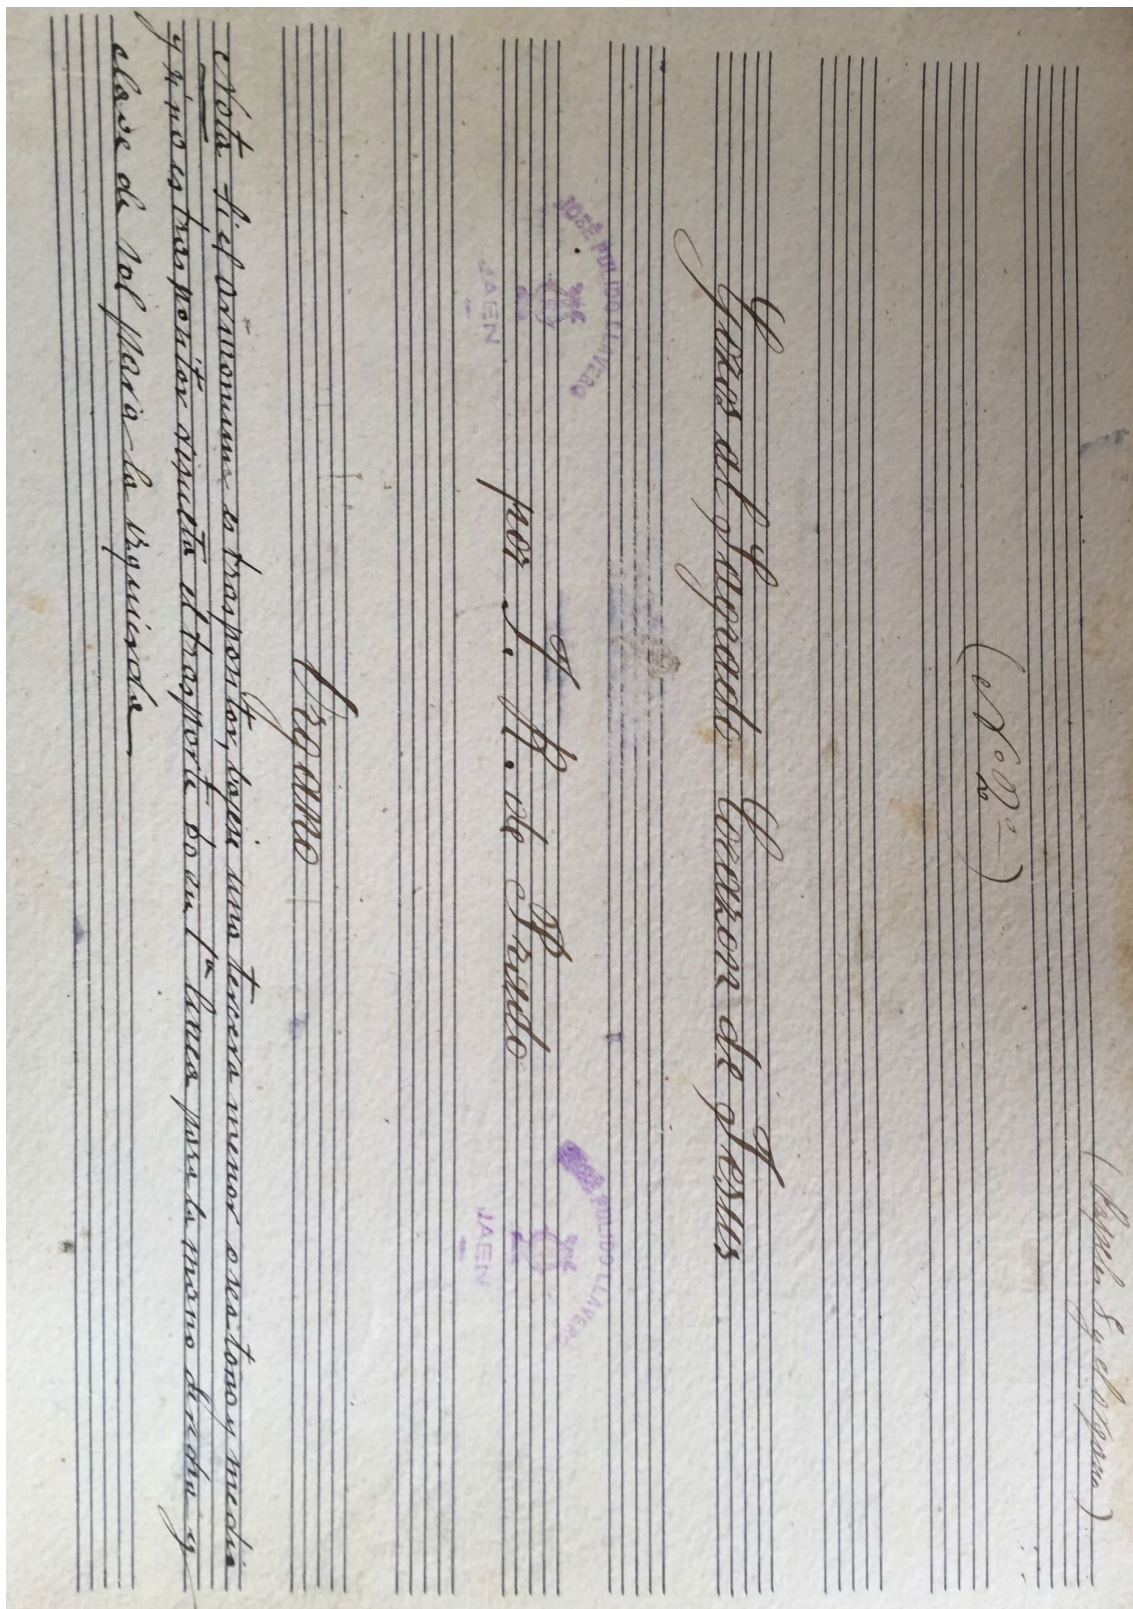 (Papeles 8 y el organo)
(Nº 2º)
Gozos al Sagrado Corazon de Jesus
JOSÉ PULIDO LLAVERO
JAEN
JOSÉ PULIDO LLAVERO
JAEN
por J. M. de Prado
Organo
Nota Si el armonium es traspositor, bajese una tercera menor o sea tono y medio
y si no es traspositor resulta el trasporte Do en 1ª linea para la mano derecha y
clave de sol para la izquierda